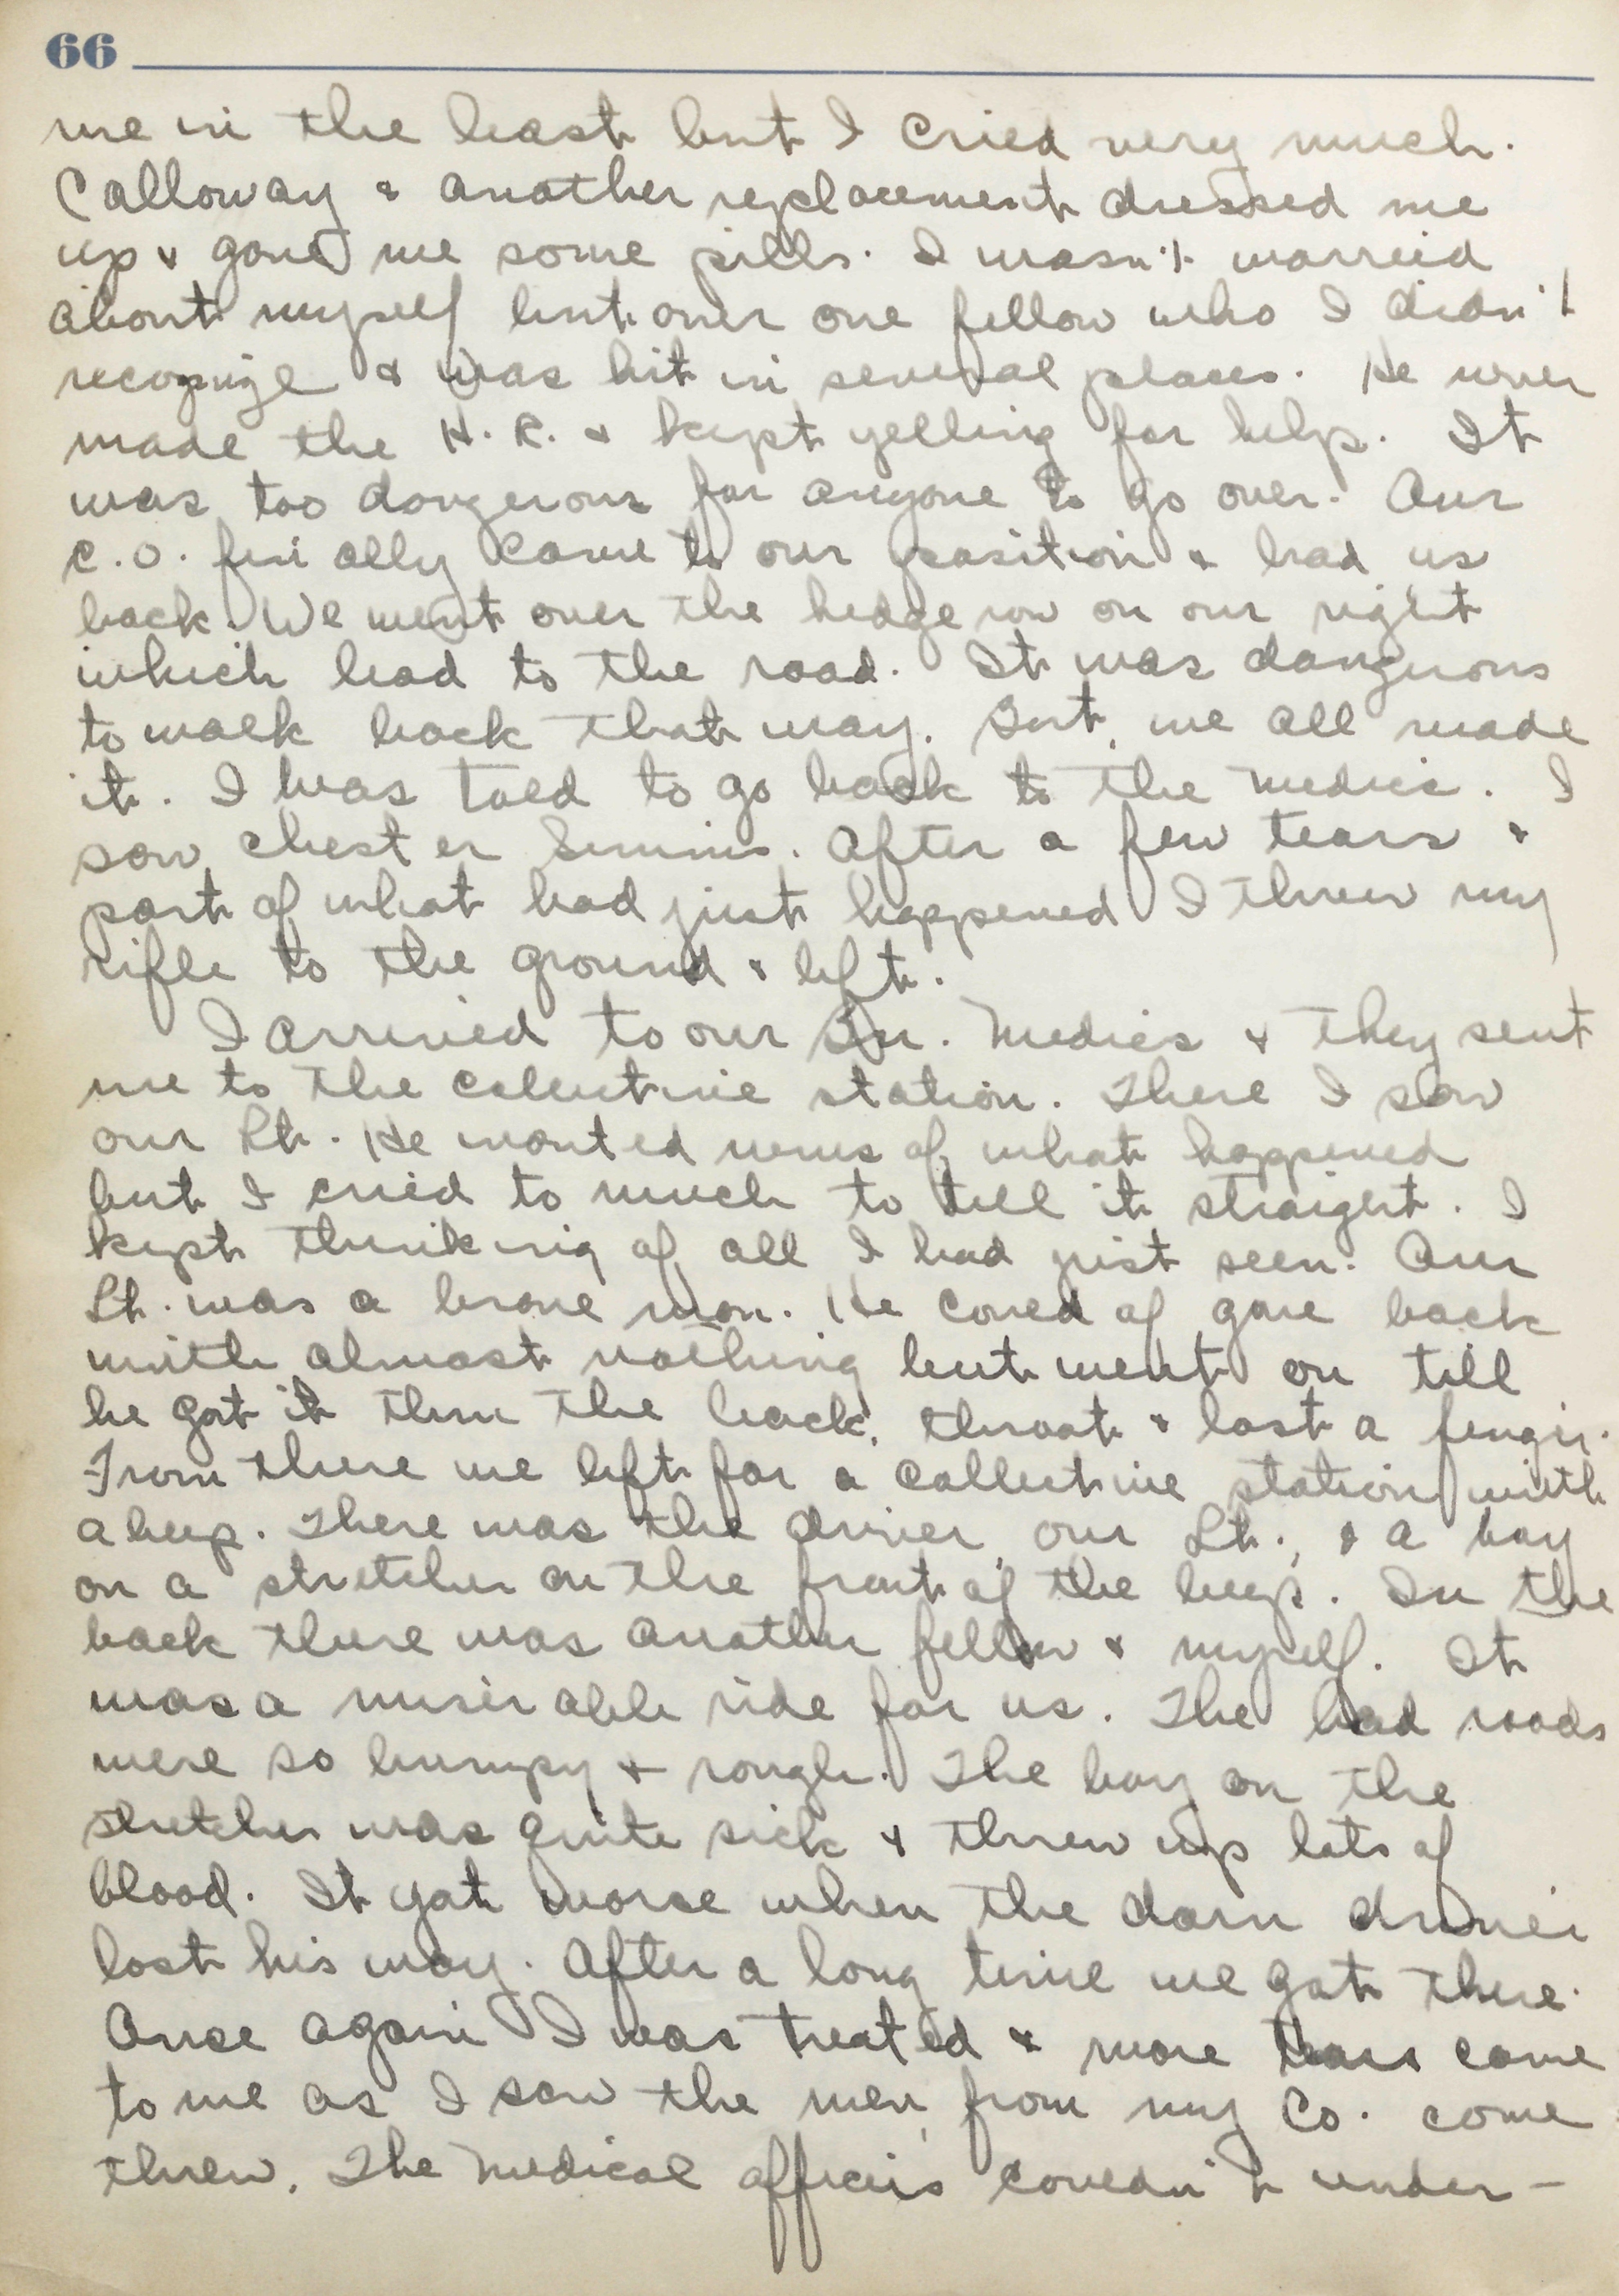 66
me in the least but I cried very much.
Calloway & another replacement dressed me
up & gave me some pills. I wasn't worried
about myself but over one fellow who I didn't
recognize & was hit in several places. He never
made the H. R. & kept yelling for help. It
was too dangerous for anyone to go over. Our
C.O. finially came to our position & lead us
back. We went over the hedge row on our right
which lead to the road. It was dangerous
to walk back that way. But, we all made
it. I was told to go back to the medics. I
saw Chester. After a few tears &
part of what had just happened I threw my
rifle to the ground & left.
I arrived to our Bn. Medics & they sent
me to the station. There I saw
our Lt. He wanted news of what happened
but I cried to much to tell it straight. I
kept thinking of all I had just seen. Our
Lt. was a brave man. He coued of gone back
with almost nothing but went on till
he got it thru the back, throat & lost a finger.
From there we left for a station with
a beep. There was the driver, our Lt., & a boy
on a stretcher on the front of the beep. In the
back there was another fellow & myself. It
was a miserable ride for us. The bad roads
were so bumpy & rough. The boy on the
stretcher was quite sick & threw up lots of
blood. It got worse when the darn driver
lost his way. After a long time we got there.
Once again I was treated & more tears came
to me as I saw the men from my Co. come
threw. The medical officers couedn't under-